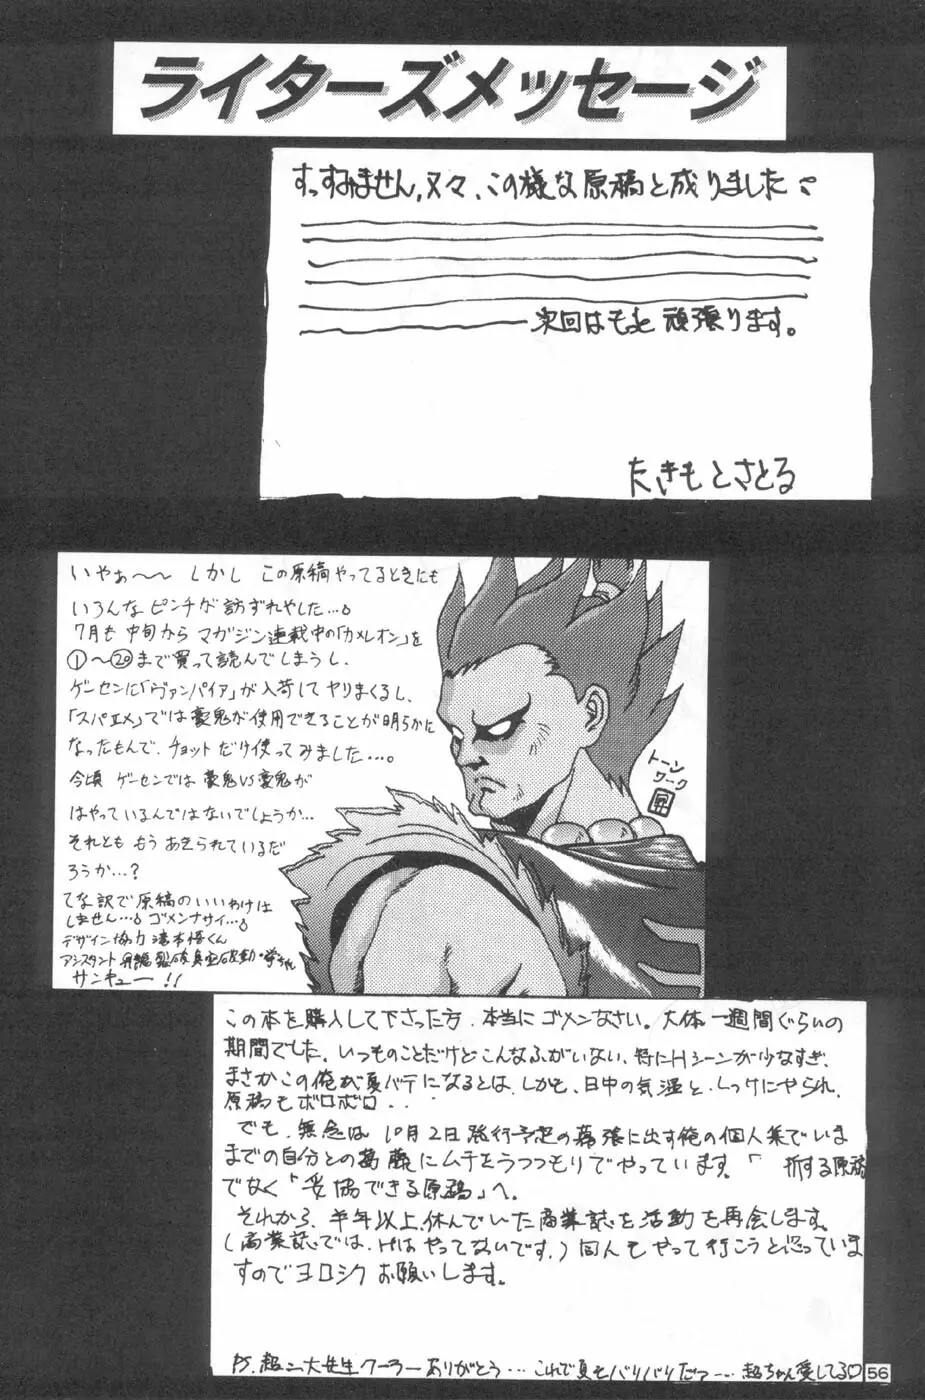 ライターズメッセージ
すっすみません，又々、この様な原稿と成りました
次回はもっと頑張ります。
たきもとさとる
いやぁ〜〜 しかし この原稿やってるときにも
いろんな ピンチが訪ずれやした…。
7月も 中旬から マガジン連載中の「カメレオン」を
①〜⑳まで買って読んでしまうし、
ゲーセンに「ヴァンパイア」が入荷して やりまくるし、
「スパⅡX」では豪鬼が使用できることが明らかに
なったもんで、チョットだけ使ってみました…。
今頃 ゲーセンでは 豪鬼VS豪鬼が
はやっているんではないでしょうか…
それとも もう あきられているだ
ろうか…？
てな訳で原稿のいいわけは
しません…。ゴメンナサイ…。
デザイン協力 滝本悟くん
アシスタント
サンキュー！！
トーン
ワーク
昇
この本を購入して下さった方、本当に ゴメンなさい。大体一週間ぐらいの
期間でした。いつものことだけどこんなふがいない、特にHシーンが少なすぎ、
まさかこの俺が夏バテになるとは、しかも、日中の気温と、しっけにやられ、
原稿もボロボロ・・
でも、無念は 10月2日発行予定の幕張に出す俺の個人集でいま
までの自分との葛藤にムチをうつつもりでやっています。「 折する原稿
でなく「妥協できる原稿」へ。
それから、半年以上、休んでいた商業誌を活動を再会します。
(商業誌では、Hはやってないです。) 同人もやって行こうと思っていま
すのでヨロシク お願いします。
P.S. 超二大先生クーラーありがとう…これで夏もバリバリだっ…超ちゃん愛してる♡
56